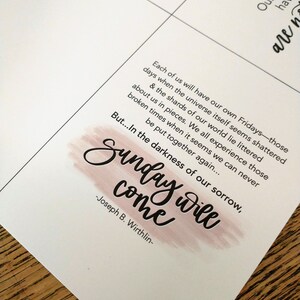 Ou
ha
are n
Each of us will have our own Fridays—those
days when the universe itself seems shattered
& the shards of our world lie littered
about us in pieces. We all experience those
broken times when it seems we can never
be put together again...
But...in the darkness of our sorrow,
Sunday will
come
-Joseph B. Wirthlin-